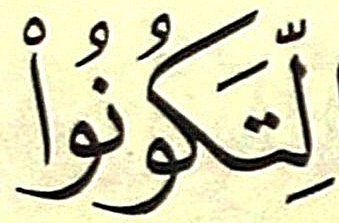 لِّتَكُونُوا۟